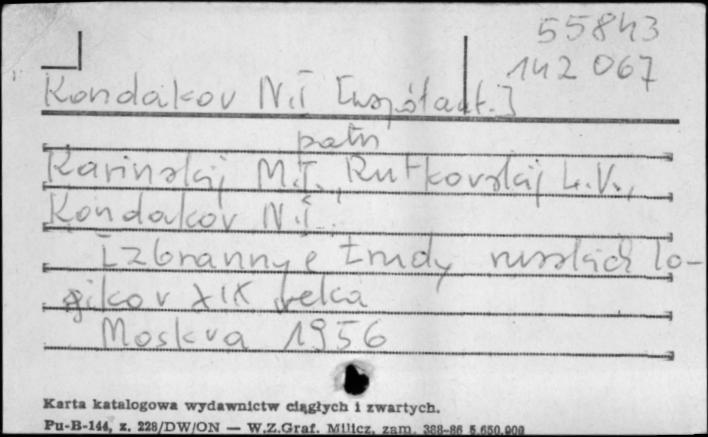 55843
142 067
Kondakov N.I [współaut.]
patrz
Karinskij M.I., Rutkovskij L.V.,
Kondakov N.I.
Izbrannye trudy russkich lo-
gikov XIX veka
Moskva 1956
Karta katalogowa wydawnictw ciągłych i zwartych.
Pu-B-144, z. 228/DW/ON — W.Z.Graf. Milicz, zam. 388-86 5.650.000